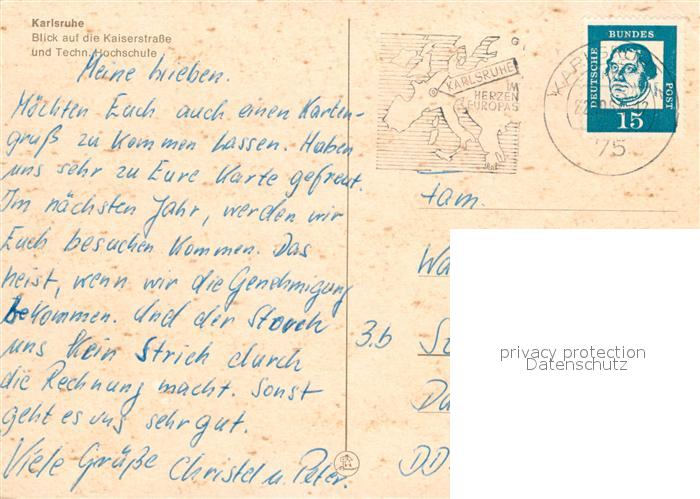 Karlsruhe
Blick auf die Kaiserstraße
und Techn. Hochschule
Meine Lieben.
Möchten Euch auch einen Karten-
gruß zu kommen lassen. Haben
uns sehr zu Eure Karte gefreut.
Im nächsten Jahr, werden wir
Euch besuchen kommen. Das
heist, wenn wir die Genehmigung
bekommen. Und der Storch
uns kein Strich durch
die Rechnung macht. Sonst
geht es uns sehr gut.
Viele Grüße Christel u. Peter.
KARLSRUHE
IM
HERZEN
EUROPAS
75
DEUTSCHE
BUNDES
POST
15
Fam.
Wa
3.b
Du
DD
privacy protection
Datenschutz